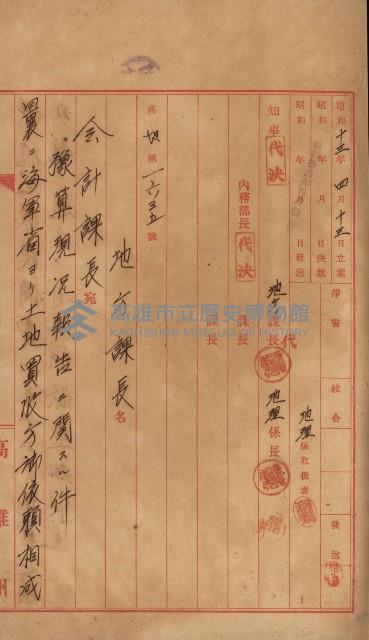 昭和十三年四月十三日立案
昭和 年 月 日決裁
昭和 年 月 日發送
淨書
校合
發送
知事 代決
內務部長 代決
地方課長
代
課長
課長
地理係長
地理係取扱者
高地第一六三五號
地方課長名
会計課長宛
豫算現況報告ニ関スル件
曩ニ海軍省ヨリ土地買收方御依頼相成
高雄州
高雄市立歷史博物館
KAOHSIUNG MUSEUM OF HISTORY